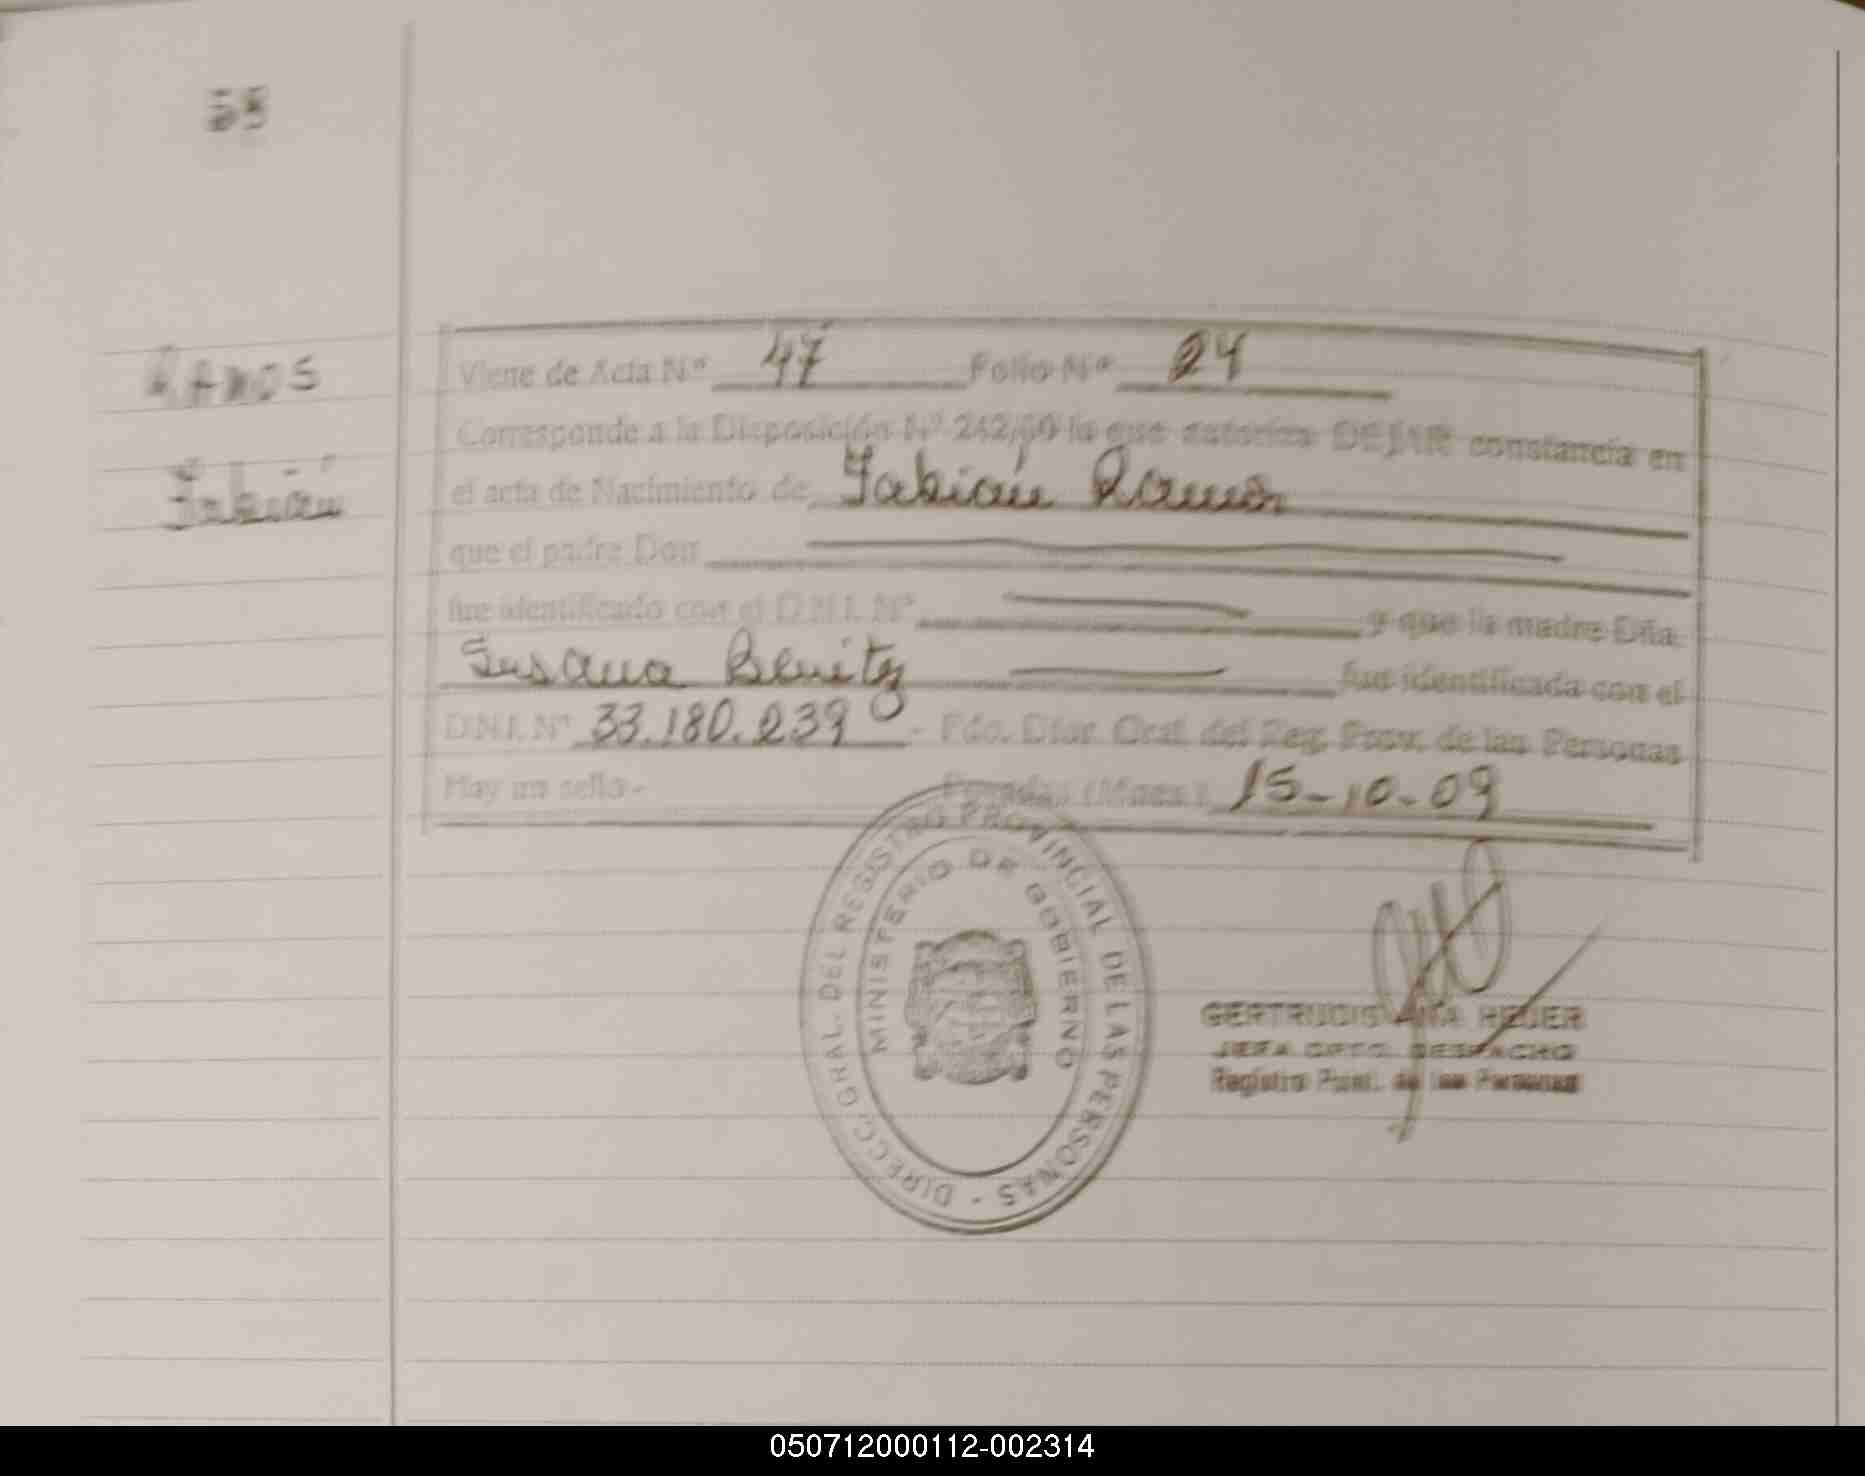 58
Ramos
Fabián
Viene de Acta Nº 47 Folio Nº 24
Corresponde a la Disposición Nº 242/ la que autoriza DEJAR constancia en
el acta de Nacimiento de Fabián Ramos
que el padre Don
fue identificado con el D.N.I. Nº y que la madre Dña.
Susana Benitez fue identificada con el
D.N.I. Nº 33.180.239 - Fdo. Dtor. Gral. del Reg. Prov. de las Personas
Hay un sello.- Posadas (Mnes.), 15-10-09
DIRECC. GRAL. DEL REGISTRO PROVINCIAL DE LAS PERSONAS -
MINISTERIO DE GOBIERNO
GERTRUDIS
JEFA DPTO. DESPACHO
Registro de las Personas
050712000112-002314